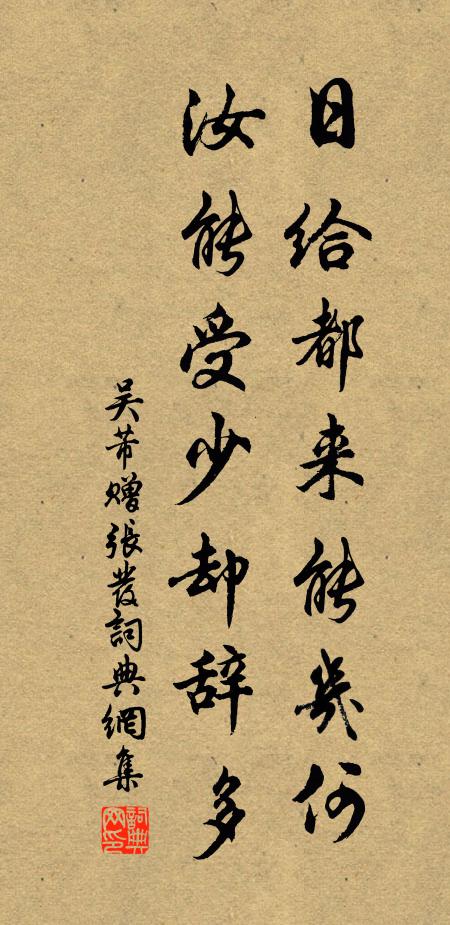 日给都来能几何
汝能受少却辞多
吴芾赠張發詞典網集
詞典网印